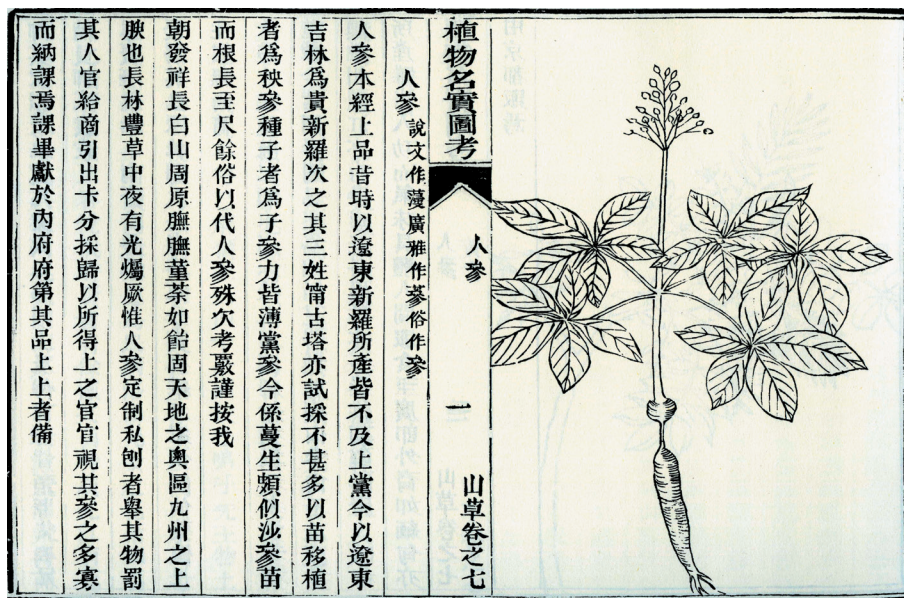 植物名實圖考
人參
一
山草卷之七
人參 說文作蓡廣雅作蓡俗作參
人參本經上品昔時以遼東新羅所產皆不及上黨今以遼東
吉林爲貴新羅次之其三姓甯古塔亦試採不甚多以苗移植
者爲秧參種子者爲子參力皆薄黨參今係蔓生頗似沙參苗
而根長至尺餘俗以代人參殊欠考覈謹按我
朝發祥長白山周原膴膴菫荼如飴固天地之奧區九州之上
腴也長林豐草中夜有光燭厥惟人參定制私刨者舉其物罰
其人官給商引出卡分採歸以所得上之官官視其參之多寡
而納課焉課畢獻於內府府第其品上上者備